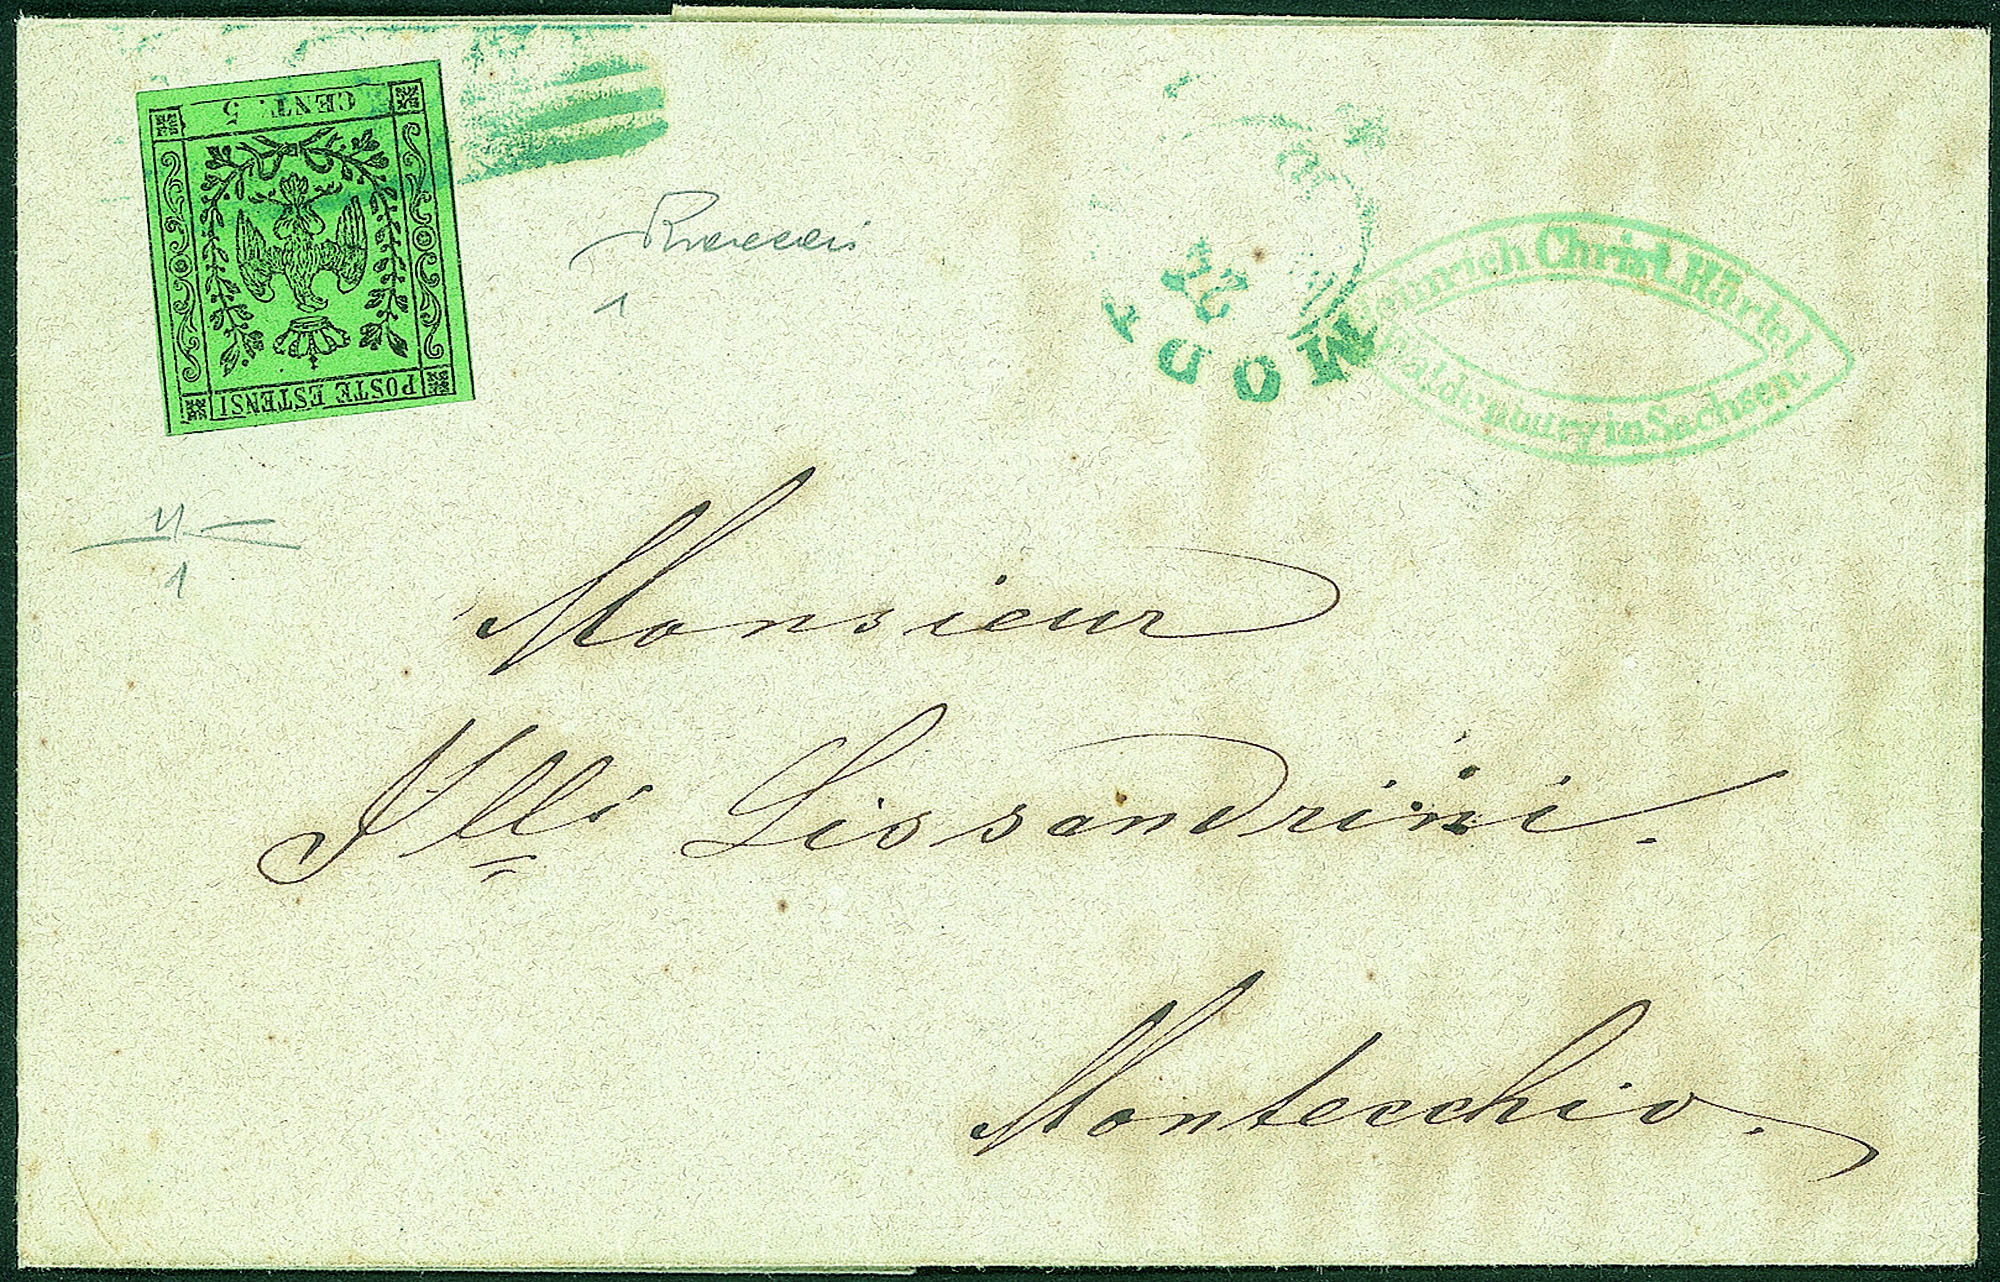 CENT. 5
POSTE ESTENSI
MODE
22
Heinrich Christ. Härtel
Waldenburg in Sachsen.
1
1
Monsieur
Flli Lissandrini.
Montecchio.